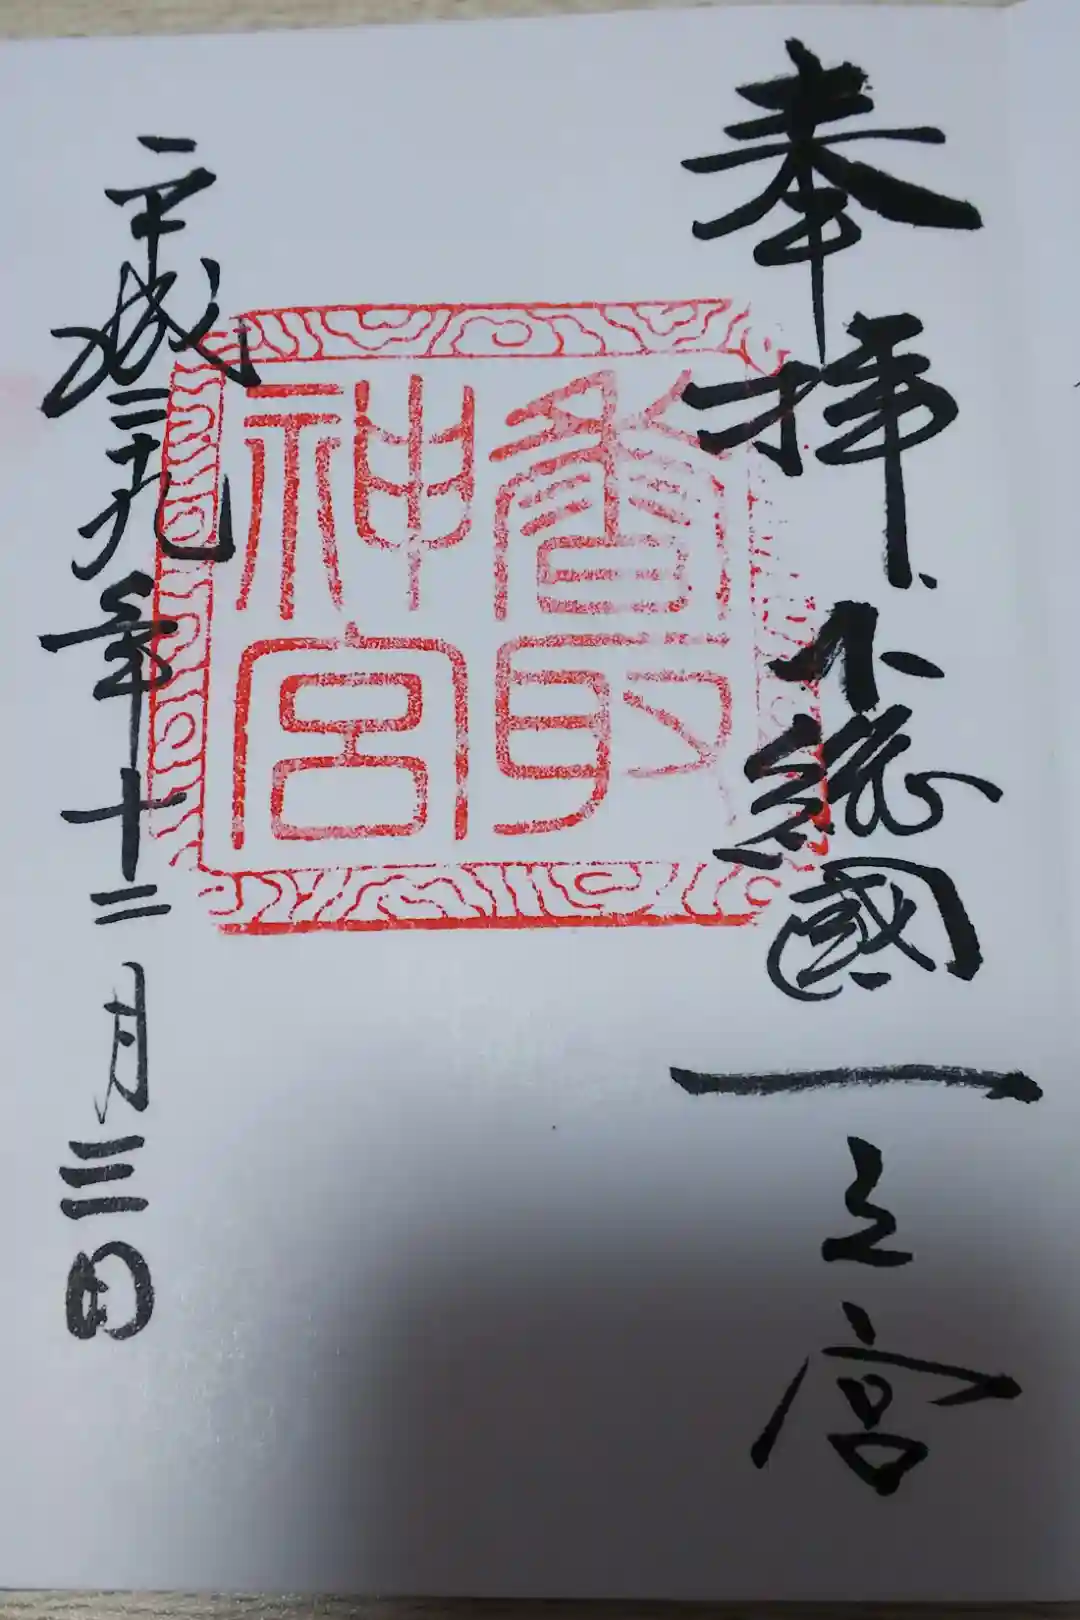 奉拝
下総國一之宮
香取
神宮
平成二十九年十二月三日